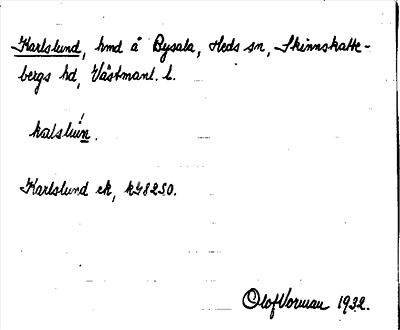 Karlslund, hmd å Bysala, Heds sn, Skinnskatte-
bergs hd, Västmanl. l.
Karlslund ek, k98250.
Olof Vorman 1932.